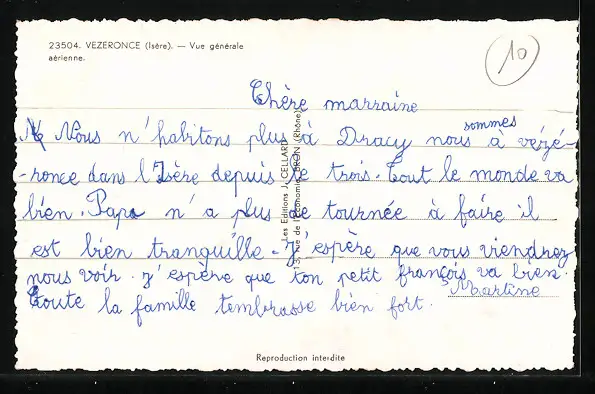 23504. VEZERONCE (Isère). — Vue générale
aérienne.
10
Chère marraine
Nous n'habitons plus à Dracy nous sommes à vézé-
-ronce dans l'Isère depuis le trois. Tout le monde va
bien. Papa n'a plus de tournée à faire il
est bien tranquille. J'espère que vous viendrez
nous voir. j'espère que ton petit françois va bien.
Toute la famille tembrasse bien fort. Martine
Les Editions J. CELLARD
3, rue de l'Economie BRON (Rhône)
Reproduction interdite